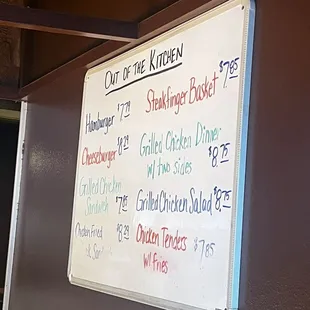 OUT OF THE KITCHEN
Hamburger
Cheeseburger
Grilled Chicken
Sandwich
Chicken Fried
Steakfinger Basket
Grilled Chicken Dinner
w/ two sides $8.75
Grilled Chicken Salad $8.75
Chicken Tenders
w/ Fries $7.85